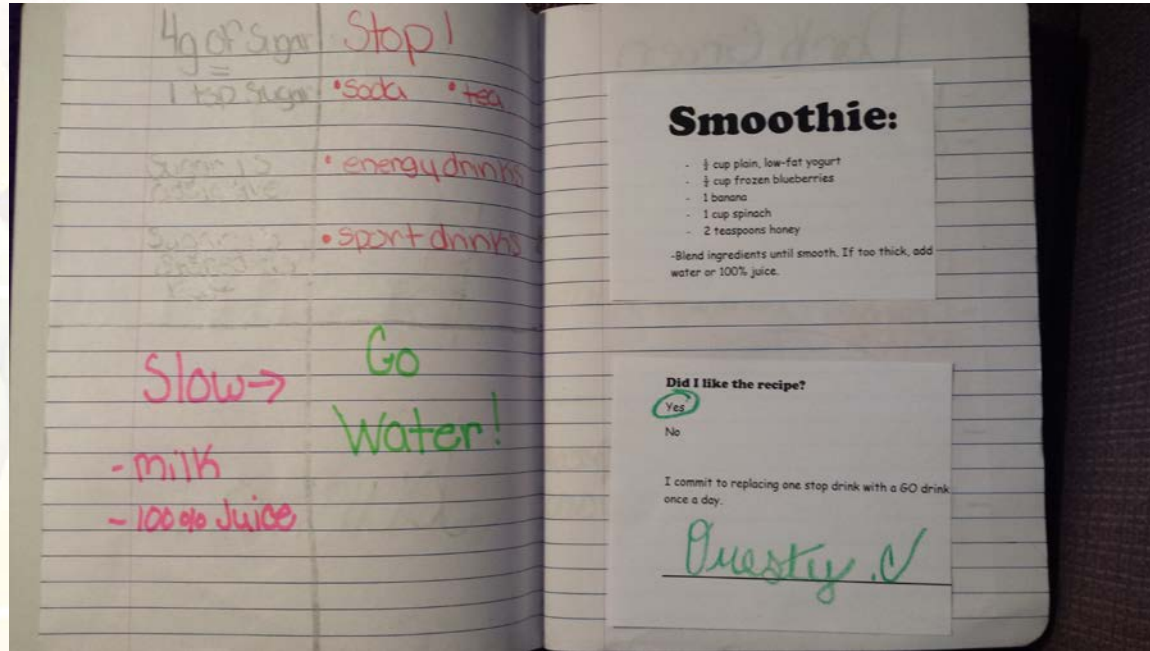 4g of Sugar
1 tsp Sugar
Stop!
• soda • tea
• energy drinks
• sport drinks
Slow→
- milk
- 100% Juice
Go
Water!
Smoothie:
- cup plain, low-fat yogurt
- cup frozen blueberries
- 1 banana
- 1 cup spinach
- 2 teaspoons honey
-Blend ingredients until smooth. If too thick, add
water or 100% juice.
Did I like the recipe?
Yes
No
I commit to replacing one stop drink with a GO drink
once a day.